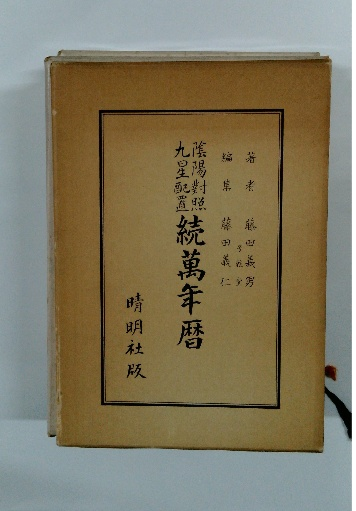 著者 藤田義男
編集 藤田義仁
陰陽對照
九星配置
続萬年暦
晴明社版